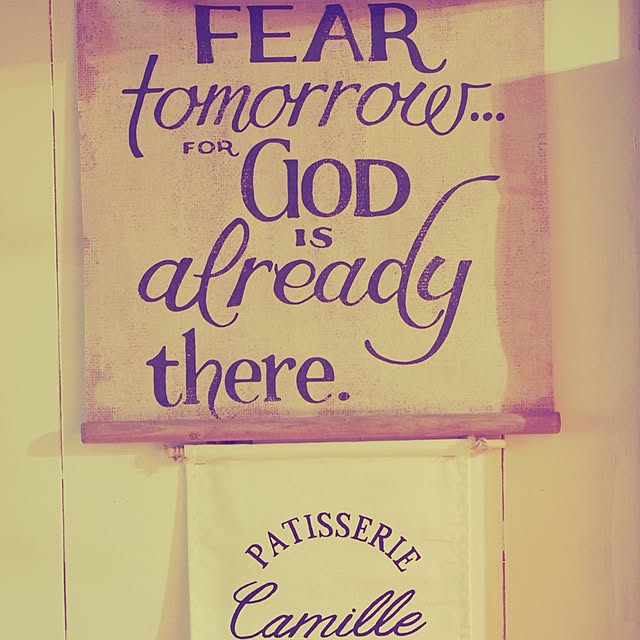 FEAR
tomorrow...
FOR
GOD
IS
already
there.
PATISSERIE
Camille